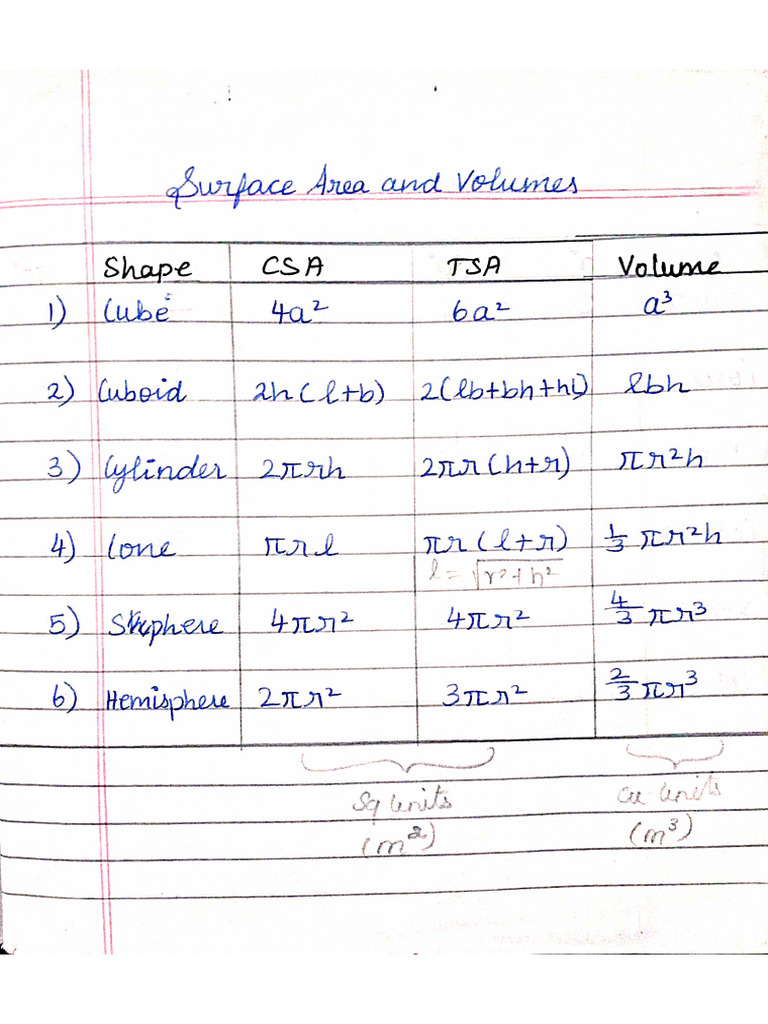 Surface Area and Volumes
Shape CSA TSA Volume
1) Cube 4a² 6a² a³
2) Cuboid 2h(l+b) 2(lb+bh+hl) lbh
3) Cylinder 2πrh 2πr(h+r) πr²h
4) Cone πrl πr(l+r) 1/3 πr²h
l = √r²+h²
5) Sphere 4πr² 4πr² 4/3 πr³
6) Hemisphere 2πr² 3πr² 2/3 πr³
Sq units cu units
(m²) (m³)